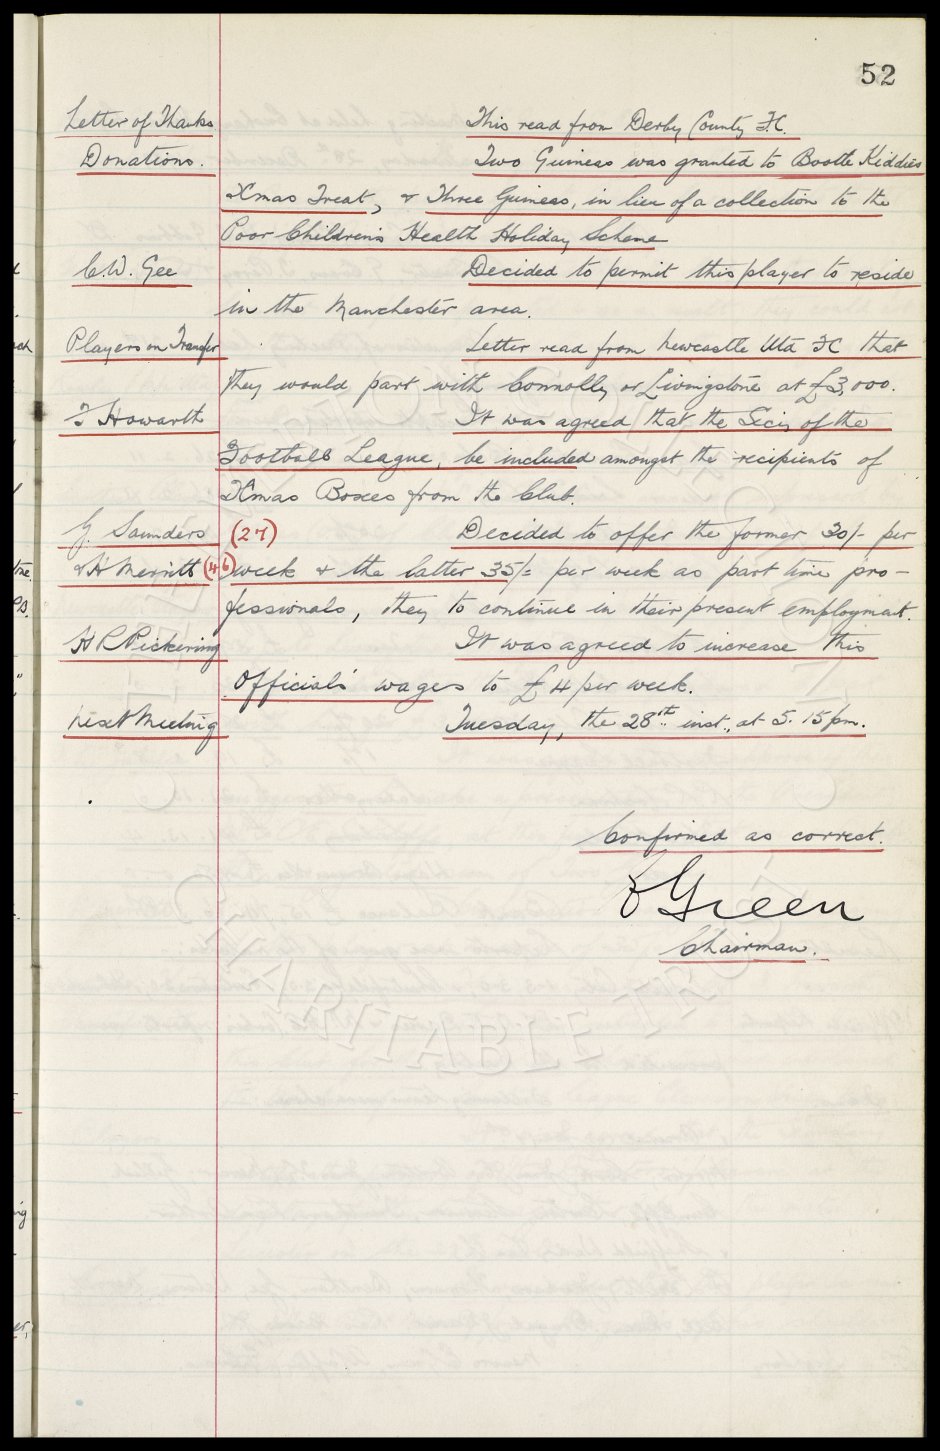 52
Letter of Thanks This read from Derby County F.C.
Donations. Two Guineas was granted to Bootle Kiddies
Xmas Treat, & Three Guineas, in lieu of a collection to the
Poor Children's Health Holiday Scheme
C.W. Gee Decided to permit this player to reside
in the Manchester area.
Players on Transfer Letter read from Newcastle Utd FC that
they would part with Connolly or Livingstone at £3,000.
T Howarth It was agreed that the Secy of the
Football League, be included amongst the recipients of
Xmas Boxes from the Club.
G. Saunders (27) Decided to offer the former 30/- per
& H Merritt (46) week & the latter 35/= per week as part time pro-
fessionals, they to continue in their present employment.
H R Pickering It was agreed to increase this
Officials' wages to £4 per week.
Next Meeting Tuesday, the 28th inst., at 5.15pm.
Confirmed as correct.
Green
Chairman.
CHARITABLE TRUST